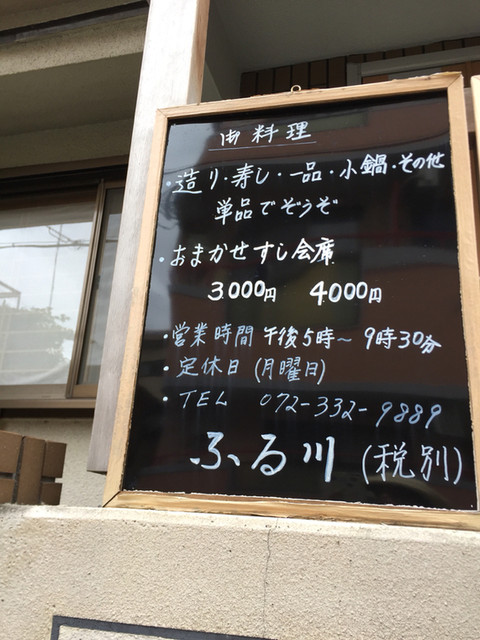 御料理
・造り・寿し・一品・小鍋・その他
単品でぞうぞ
・おまかせすし会席
3.000円 4000円
・営業時間 午後5時~9時30分
・定休日 (月曜日)
・TEL 072-332-9889
ふる川 (税別)